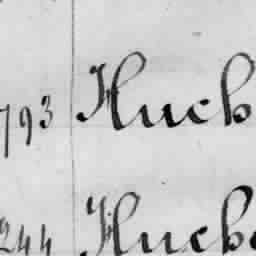 793 Huck
244 Hucke